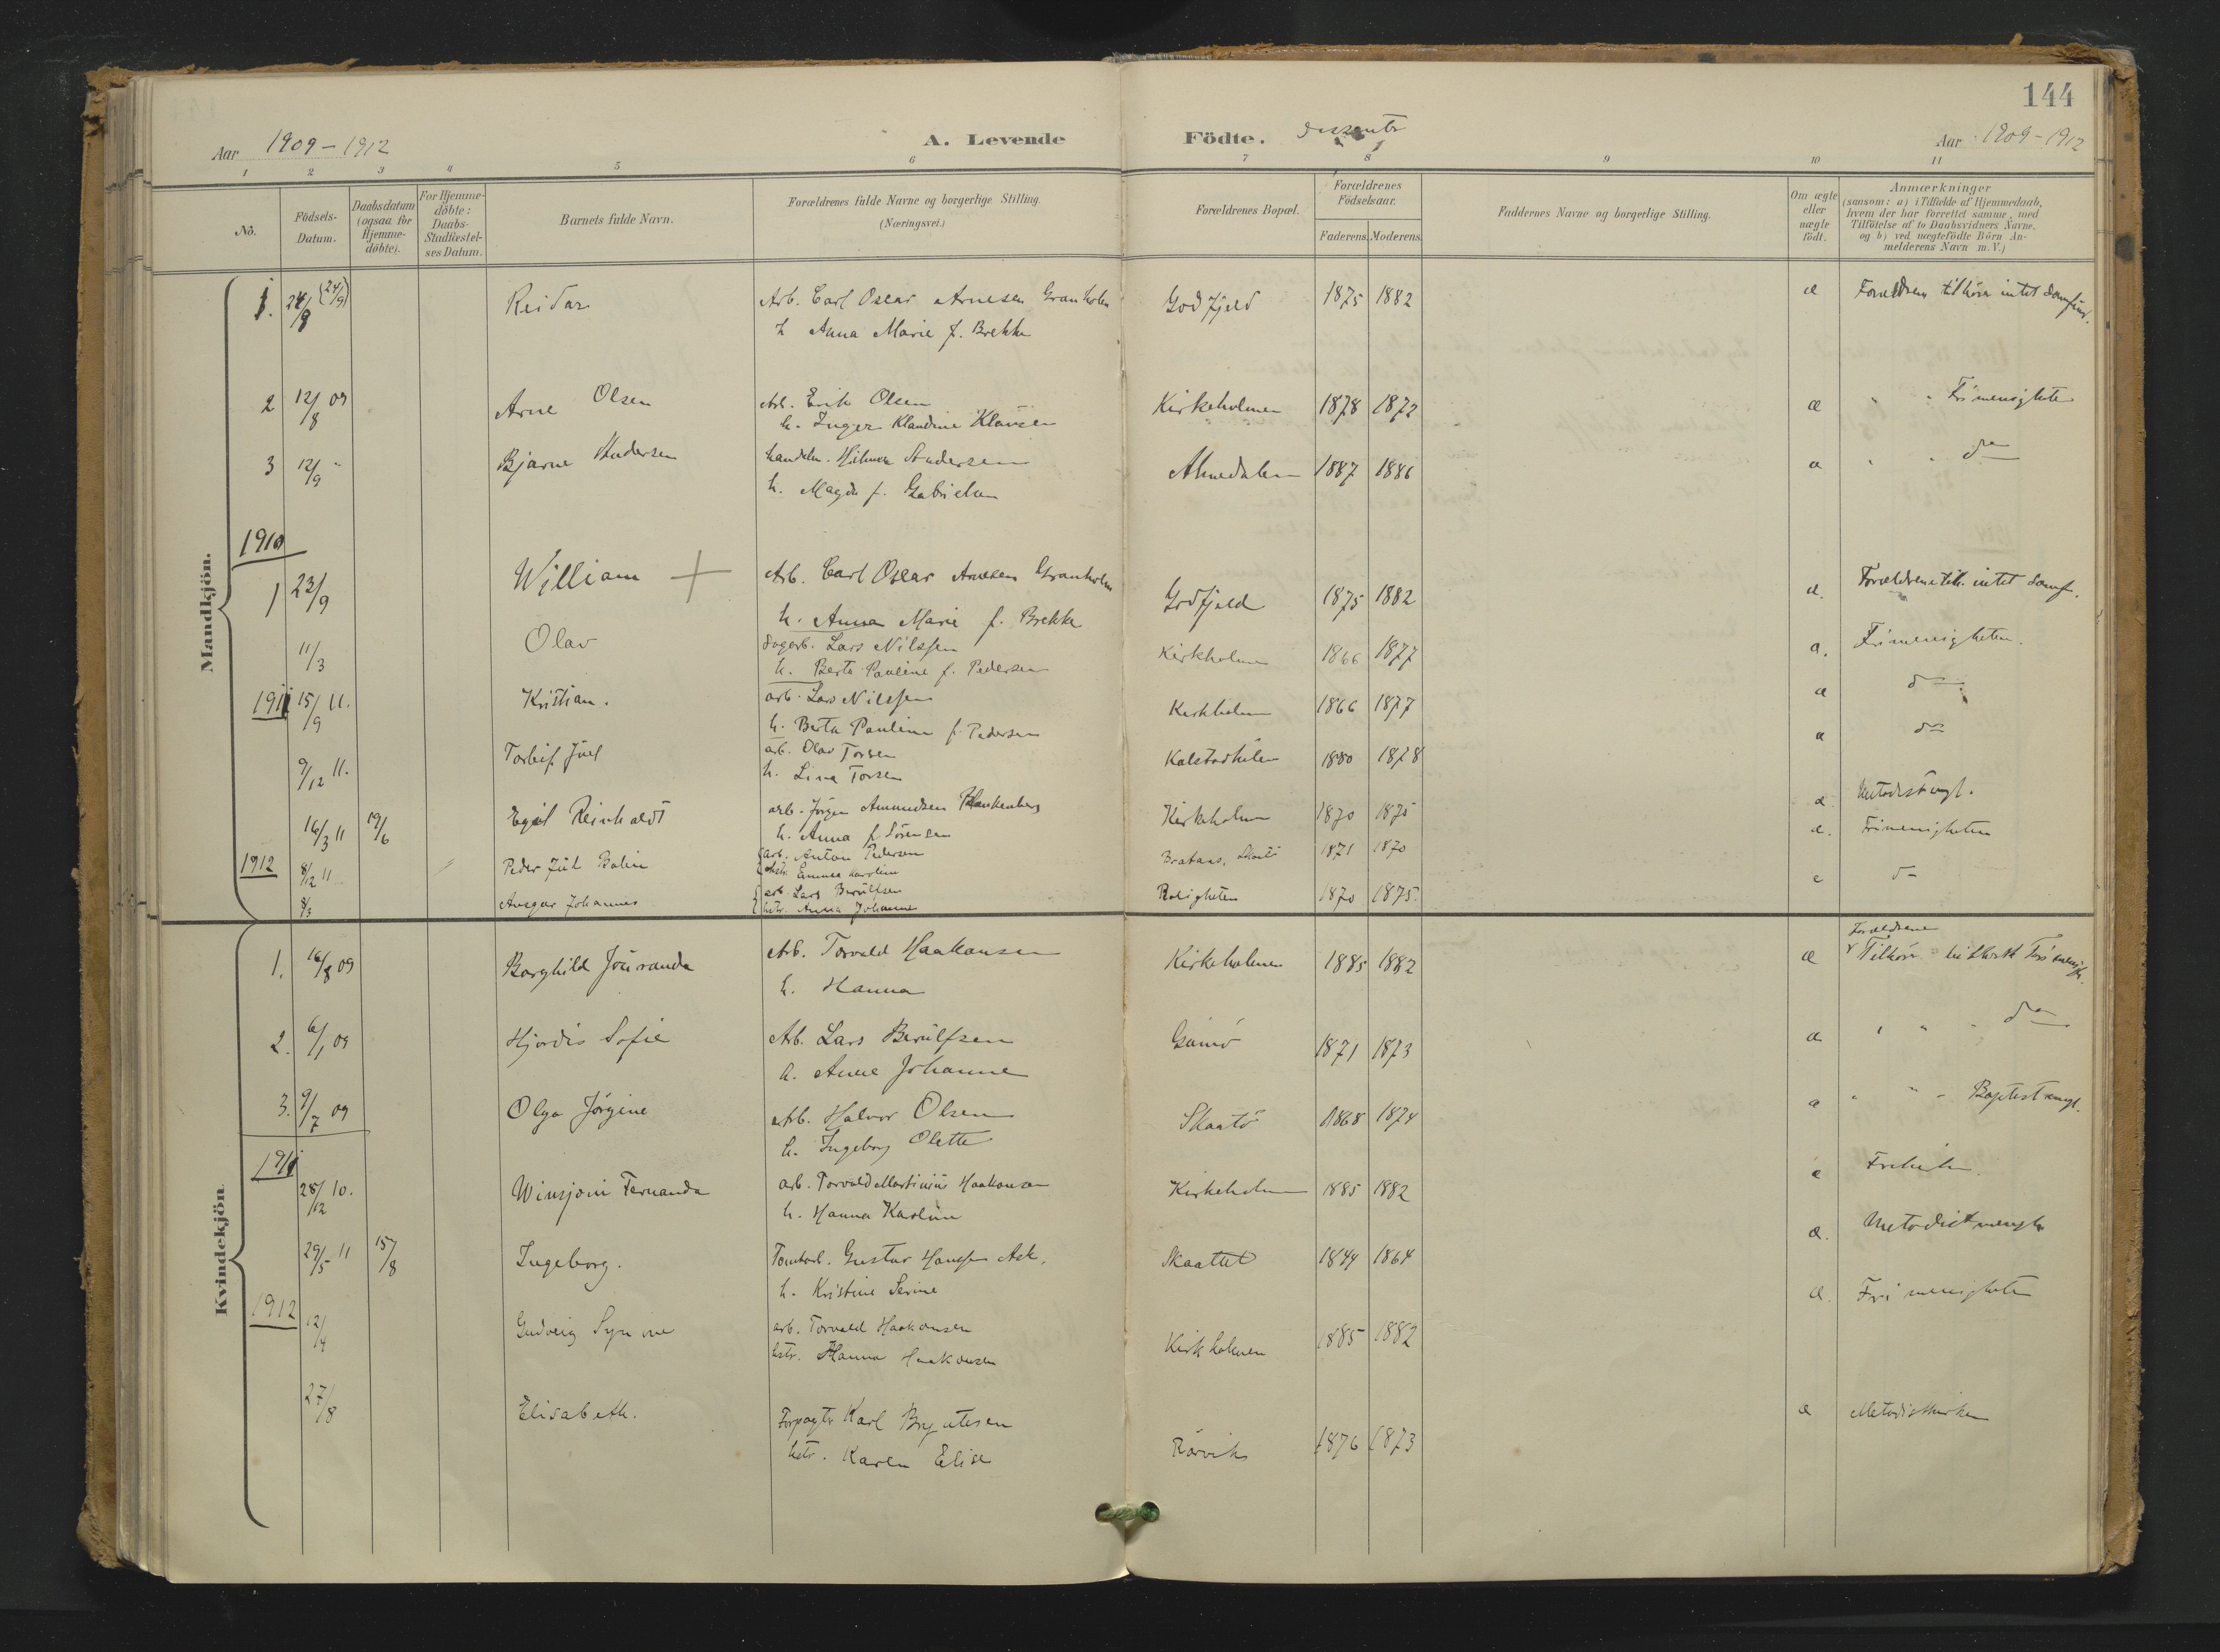 144
Aar 1909-1912
A. Levende Födte. dissenter
Aar 1909-1912
1 2 3 4 5 6 7 8 9 10 11
No.
Födsels-Datum.
Daabsdatum (ogsaa for Hjemme-döbte).
For Hjemme-döbte: Daabs-Stadfæstel-ses Datum.
Barnets fulde Navn.
Forældrenes fulde Navne og borgerlige Stilling. (Næringsvei.)
Forældrenes Bopæl.
Forældrenes Födselsaar.
Faderens. Moderens.
Faddernes Navne og borgerlige Stilling.
Om ægte eller uægte födt.
Anmærkninger
(saasom: a) i Tilfælde af Hjemmedaab,
hvem der har forrettet samme, med
Tilföielse af to Daabsvidners Navne.
og b) ved uægtefödte Börn An-
melderens Navn m.V.)
Mandkjön.
1. 24/8 (24/9) Reidar Arb. Carl Oscar Arnesen Granholm Godfjeld 1875 1882 æ Forældrene tilhører intet Samfund.
h Anna Marie f. Brekke
2 12/8 09 Arne Olsen Arb. Erik Olsen Kirkeholmen 1878 1872 æ " " Frimenigheten
h. Inger Klandine Klausen
3 12/9 " Bjarne Andersen handelm. Hilmar Andersen Almedalen 1887 1886 æ " " do
h. Magda f. Gabrielsen
1910
1 23/9 William + Arb. Carl Oscar Arnesen Granholm Godfjeld 1875 1882 æ. Forældrene tilh. intet Samf.
h. Anna Marie f. Brekke
11/3 Olav dagarb. Lars Nilssen Kirkholmen 1866 1877 æ. Frimenigheten.
h. Berta Pauline f. Pedersen
1911 15/9 11. Kristian. arb. Lars Nilssen Kirkholmen 1866 1877 æ do
h. Berta Pauline f. Pedersen
9/12 11. Torleif Juel arb. Olav Torsen 1880 1878 æ do
h. Lina Torsen
16/3 11 19/6 Egil Reinhardt arb. Jörgen Amundsen Blankenberg Kirkeholmen 1870 1875 æ. Metodistmgh.
h. Anna f. Sörensen
1912 8/12 11 Peder Juel arb. Anton Pedersen 1871 1870 æ. Frimenigheten
hstr. Emma Karoline
8/3 Ansgar Johannes arb. Lars Berulfsen Roligheten 1870 1875. do
hstr. Anna Johanne
Kvindekjön.
1. 16/8 09 Borghild Jouranda Arb. Torvald Haakonsen Kirkeholmen 1885 1882 æ Forældrene
Tilhører
h. Hanna
2. 6/1 09 Hjördis Sofie Arb. Lars Berulfsen Gumö 1871 1873 æ " " " do
h. Anne Johanne
3. 9/7 09 Olga Jörgine Arb. Halvor Olsen Skaatö 1868 1874 æ " " " Baptistmengh.
h. Ingeborg Olette
1911
28/12 10. Winsjoni Fernanda arb. Torvald Martinius Haakonsen Kirkeholmen 1885 1882 æ
h. Hanna Karline
29/5 11 15/8 Ingeborg. Gustav Hansen Ask. 1844 1864 æ. Metodistmengh
h. Kristine Serine
1912
12/4 Gudveig Synöve arb. Torvald Haakonsen Kirkholmen 1885 1882 æ. Frimenigheten
hstr. Hanna Haakonsen
27/8 Elisabeth. Forpagter Karl Bryntesen Rörvik 1876 1873 æ Metodistkirken
hstr. Karen Elise